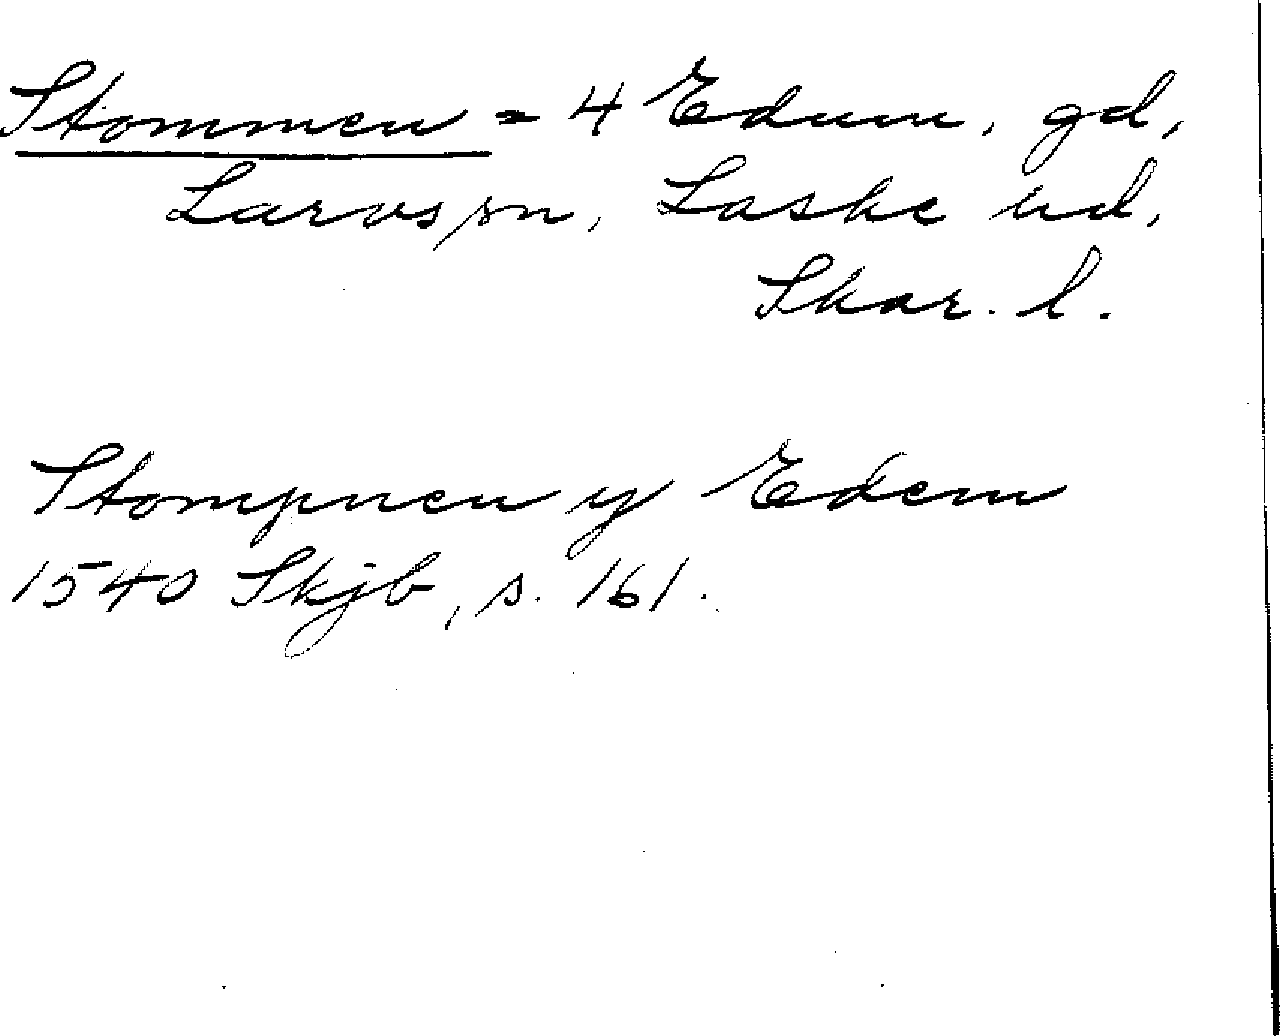 Stommen = 4 Edum, gd,
Larvs sn, Laske hd,
Skar. l.
Stompnen y Edem
1540 Skjb, s. 161.